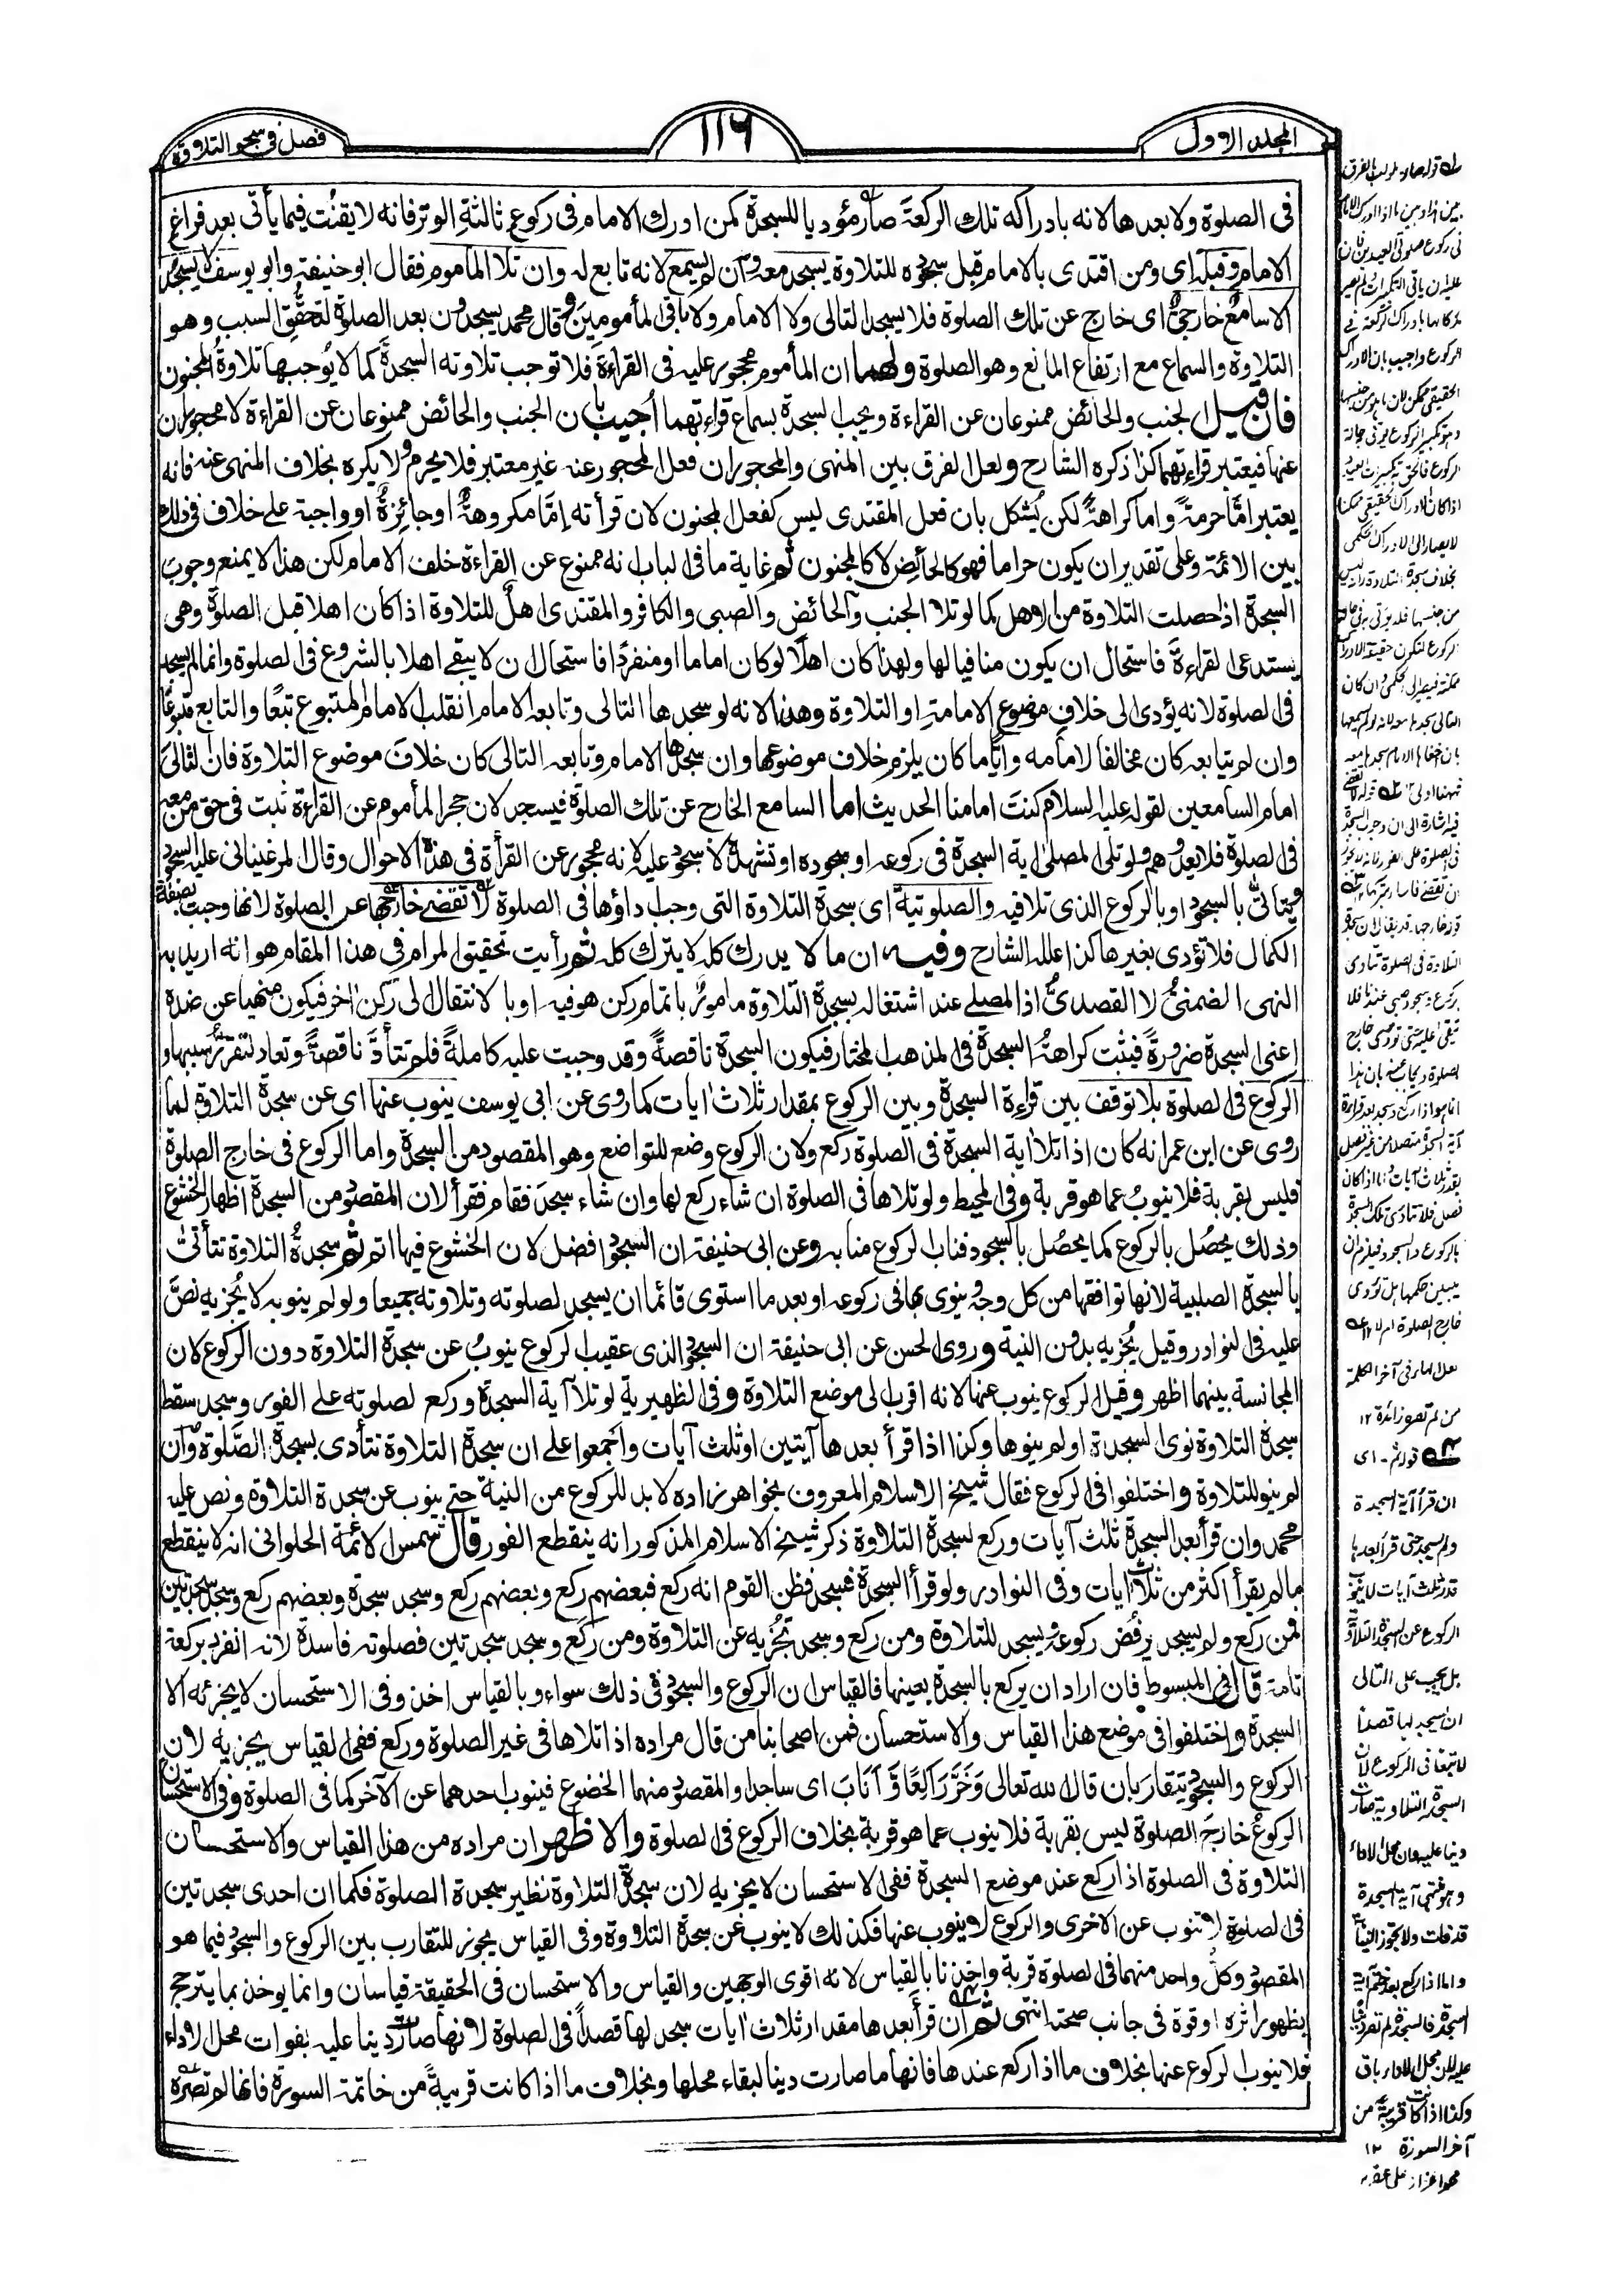 المجلد الاول
١١٦
فصل فى سجود التلاوة
فى الصلوة ولا بعدها لانه بادراكه تلك الركعة صار مؤديا للسجدة كمن ادرك الامام فى ركوع ثالثة الوتر فانه لا يقنت فيما يأتى بعد فراغ
الامام وقبله اى ومن اقتدى بالامام قبل سجوده للتلاوة يسجد معه وان لم يسمع لانه تابع له وان تلا المأموم فقال ابو حنيفة وابو يوسف لا يسجد
الا سامع خارجى اى خارج عن تلك الصلوة فلا يسجد التالى ولا الامام ولا باقى المأمومين وقال محمد يسجدون بعد الصلوة لتحقق السبب وهو
التلاوة والسماع مع ارتفاع المانع وهو الصلوة ولهما ان المأموم محجور عليه فى القراءة فلا توجب تلاوته السجدة كما لا يوجبها تلاوة المجنون
فان قيل الجنب والحائض ممنوعان عن القراءة ويجب السجدة بسماع قراءتهما اجيب بان الجنب والحائض ممنوعان عن القراءة لا محجوران
عنها فيعتبر قراءتهما كذا ذكره الشارح ولعل الفرق بين المنهى والمحجور ان فعل المحجور عنه غير معتبر فلا يحرم ولا يكره بخلاف المنهى عنه فانه
يعتبر اما حرمة واما كراهة لكن يشكل بان فعل المقتدى ليس كفعل المجنون لان قرأته اما مكروهة او جائزة او واجبة على خلاف فى ذلك
بين الائمة وعلى تقدير ان يكون حراما فهو كالحائض لا كالمجنون ثم غاية ما فى الباب انه ممنوع عن القراءة خلف الامام لكن هذا لا يمنع وجوب
السجدة اذا حصلت التلاوة من الاهل كما لو تلا الجنب والحائض والصبى والكافر والمقتدى اهل للتلاوة اذا كان اهلا قبل الصلوة وهى
يستدعى القراءة فاستحال ان يكون منافيا لها ولهذا كان اهلا لو كان اماما او منفردا فاستحال ان لا يبقى اهلا بالشروع فى الصلوة وانما لم يسجد
فى الصلوة لانه يؤدى الى خلاف موضوع الامامة او التلاوة وهذا لانه لو سجدها التالى وتابعه الامام انقلب الامام المتبوع تبعا والتابع متبوعا
وان لم يتابعه كان مخالفا لامامه واياما كان يلزم خلاف موضوعها وان سجدها الامام وتابعه التالى كان خلاف موضوع التلاوة فان التالى
امام السامعين لقوله عليه السلام كنت امامنا الحديث اما السامع الخارج عن تلك الصلوة فيسجد لان حجر المأموم عن القراءة ثبت فى حق من معه
فى الصلوة فلا يعدوهم ولو تلى المصلى اية السجدة فى ركوعه او سجوده او تشهده لا سجود عليه لانه محجور عن القرأة فى هذه الاحوال وقال المرغينانى عليه السجود
ويتأتى بالسجود او بالركوع الذى تلا فيه والصلوتية اى سجدة التلاوة التى وجب داؤها فى الصلوة لا تقضى خارجها عن الصلوة لانها وجبت بصفة
الكمال فلا تؤدى بغيرها كذا علله الشارح وفيه ان ما لا يدرك كله لا يترك كله ثم رأيت تحقيق المرام فى هذا المقام هو انه اريد به
النهى الضمنى لا القصدى اذ المصلى عند اشتغاله بسجدة التلاوة مامور باتمام ركن هو فيه او بالانتقال الى ركن اخر فيكون منهيا عن ضده
اعنى السجدة ضرورة فيثبت كراهة السجدة فى المذهب المختار فيكون السجدة ناقصة وقد وجبت عليه كاملة فلم تتأد ناقصة وتعاد لتقرر سببها و
الركوع فى الصلوة بلا توقف بين قراءة السجدة وبين الركوع بمقدار ثلاث ايات كما روى عن ابى يوسف ينوب عنها اى عن سجدة التلاوة لما
روى عن ابن عمر انه كان اذا تلا اية السجدة فى الصلوة ركع ولان الركوع وضع للتواضع وهو المقصود من السجدة واما الركوع فى خارج الصلوة
فليس بقربة فلا ينوب عما هو قربة وفى المحيط ولو تلاها فى الصلوة ان شاء ركع لها وان شاء سجد فقام فقرأ لان المقصود من السجدة اظهار الخشوع
وذلك يحصل بالركوع كما يحصل بالسجود فناب الركوع منابه وعن ابى حنيفة ان السجود افضل لان الخشوع فيها اتم ثم سجدة التلاوة تتأتى
بالسجدة الصلبية لانها توافقها من كل وجه ينوى بها فى ركوعه او بعد ما استوى قائما ان يسجد لصلوته وتلاوته جميعا ولو لم ينو به لا يجزيه نص
عليه فى النوادر وقيل يجزيه بدون النية وروى الحسن عن ابى حنيفة ان السجود الذى عقيب الركوع ينوب عن سجدة التلاوة دون الركوع لان
المجانسة بينهما اظهر وقيل الركوع ينوب عنها لانه اقرب الى موضع التلاوة وفى الظهيرية لو تلا آية السجدة وركع لصلوته على الفور وسجد سقط
سجدة التلاوة نوى السجدة او لم ينوها وكذا اذا قرأ بعدها آيتين او ثلث آيات واجمعوا على ان سجدة التلاوة تتأدى بسجدة الصلوة وان
لم ينو للتلاوة واختلفوا فى الركوع فقال شيخ الاسلام المعروف بخواهر زاده لا بد للركوع من النية حتى ينوب عن سجدة التلاوة ونص عليه
محمد وان قرأ بعد السجدة ثلث آيات وركع لسجدة التلاوة ذكر شيخ الاسلام المذكور انه ينقطع الفور وقال شمس الائمة الحلوانى انه لا ينقطع
ما لم يقرأ اكثر من ثلاث ايات وفى النوادر ولو قرأ السجدة فسجد فظن القوم انه ركع فبعضهم ركع وبعضهم ركع وسجد سجدة وبعضهم ركع وسجد سجدتين
فمن ركع ولم يسجد يرفض ركوعه ويسجد للتلاوة ومن ركع وسجد تجزيه عن التلاوة ومن ركع وسجد سجدتين فصلوته فاسدة لانه انفرد بركعة
تامة قال فى المبسوط فان اراد ان يركع بالسجدة بعينها فالقياس ان الركوع والسجود فى ذلك سواء وبالقياس اخذ وفى الاستحسان لا يجزئه الا
السجدة واختلفوا فى موضع هذا القياس والاستحسان فمن اصحابنا من قال مراده اذا تلاها فى غير الصلوة وركع ففى القياس يجزيه لان
الركوع والسجود يتقاربان قال الله تعالى وَخَرَّ رَاكِعًا وَّاَنَابَ اى ساجدا والمقصود منهما الخضوع فينوب احدهما عن الآخر كما فى الصلوة وفى الاستحسان
الركوع خارج الصلوة ليس بقربة فلا ينوب عما هو قربة بخلاف الركوع فى الصلوة والاظهر ان مراده من هذا القياس والاستحسان
التلاوة فى الصلوة اذا ركع عند موضع السجدة ففى الاستحسان لا يجزيه لان سجدة التلاوة نظير سجدة الصلوة فكما ان احدى سجدتين
فى الصلوة لا تنوب عن الاخرى والركوع لا ينوب عنها فكذلك لا ينوب عن سجدة التلاوة وفى القياس يجوز للتقارب بين الركوع والسجود فيما هو
المقصود وكل واحد منهما فى الصلوة قربة واخذنا بالقياس لانه اقوى الوجهين والقياس والاستحسان فى الحقيقة قياسان وانما يوخذ بما يترجح
بظهور اثره او قوة فى جانب صحته انتهى ثم ان قرأ بعدها مقدار ثلاث ايات سجد لها قصدا فى الصلوة لانها صارت دينا عليه بفوات محل الاداء
فلا ينوب الركوع عنها بخلاف ما اذا ركع عندها فانها ما صارت دينا لبقاء محلها وبخلاف ما اذا كانت قريبة من خاتمة السورة فانها لم تصر
من لم تصر زائدة ١٢
قوله ثم اى
ان قرأ آية السجدة
ولم يسجد حتى قرأ بعدها
قدر ثلث آيات لا ينوب
الركوع عن السجدة التلاوة
بل يجب على التالى
ان يسجد لها قصدا
لا تبعا فى الركوع لان
السجدة التلاوية صارت
دينا عليه وان محل الاداء
وهو منتهى آية السجدة
قد فات
واما اذا ركع بعد ختم آية
السجدة فالسجدة لم تصر دينا
عليه لان محل الاداء باق
وكذا اذا كانت قريبة من
آخر السورة ١٢